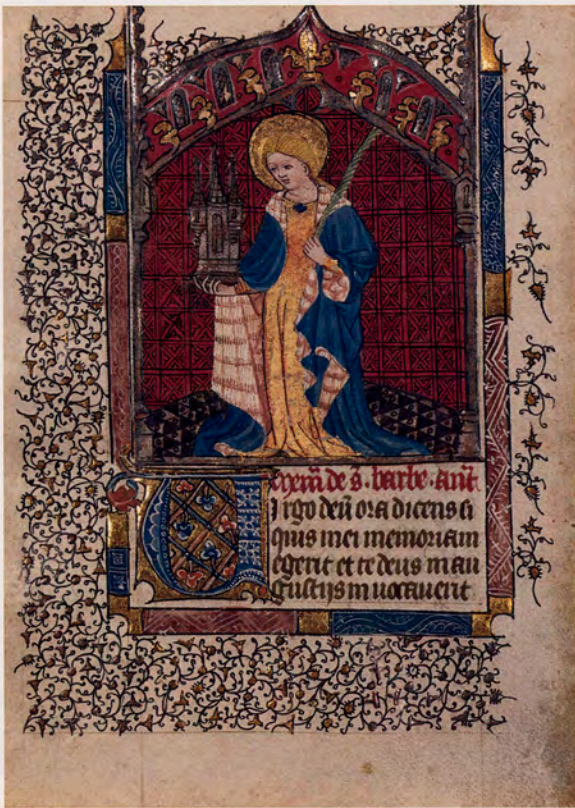 de s̄. barbe. ant̄
Virgo deū ora dicens si
quis mei memoriam
egerit et te deus in an
gustijs inuocauerit